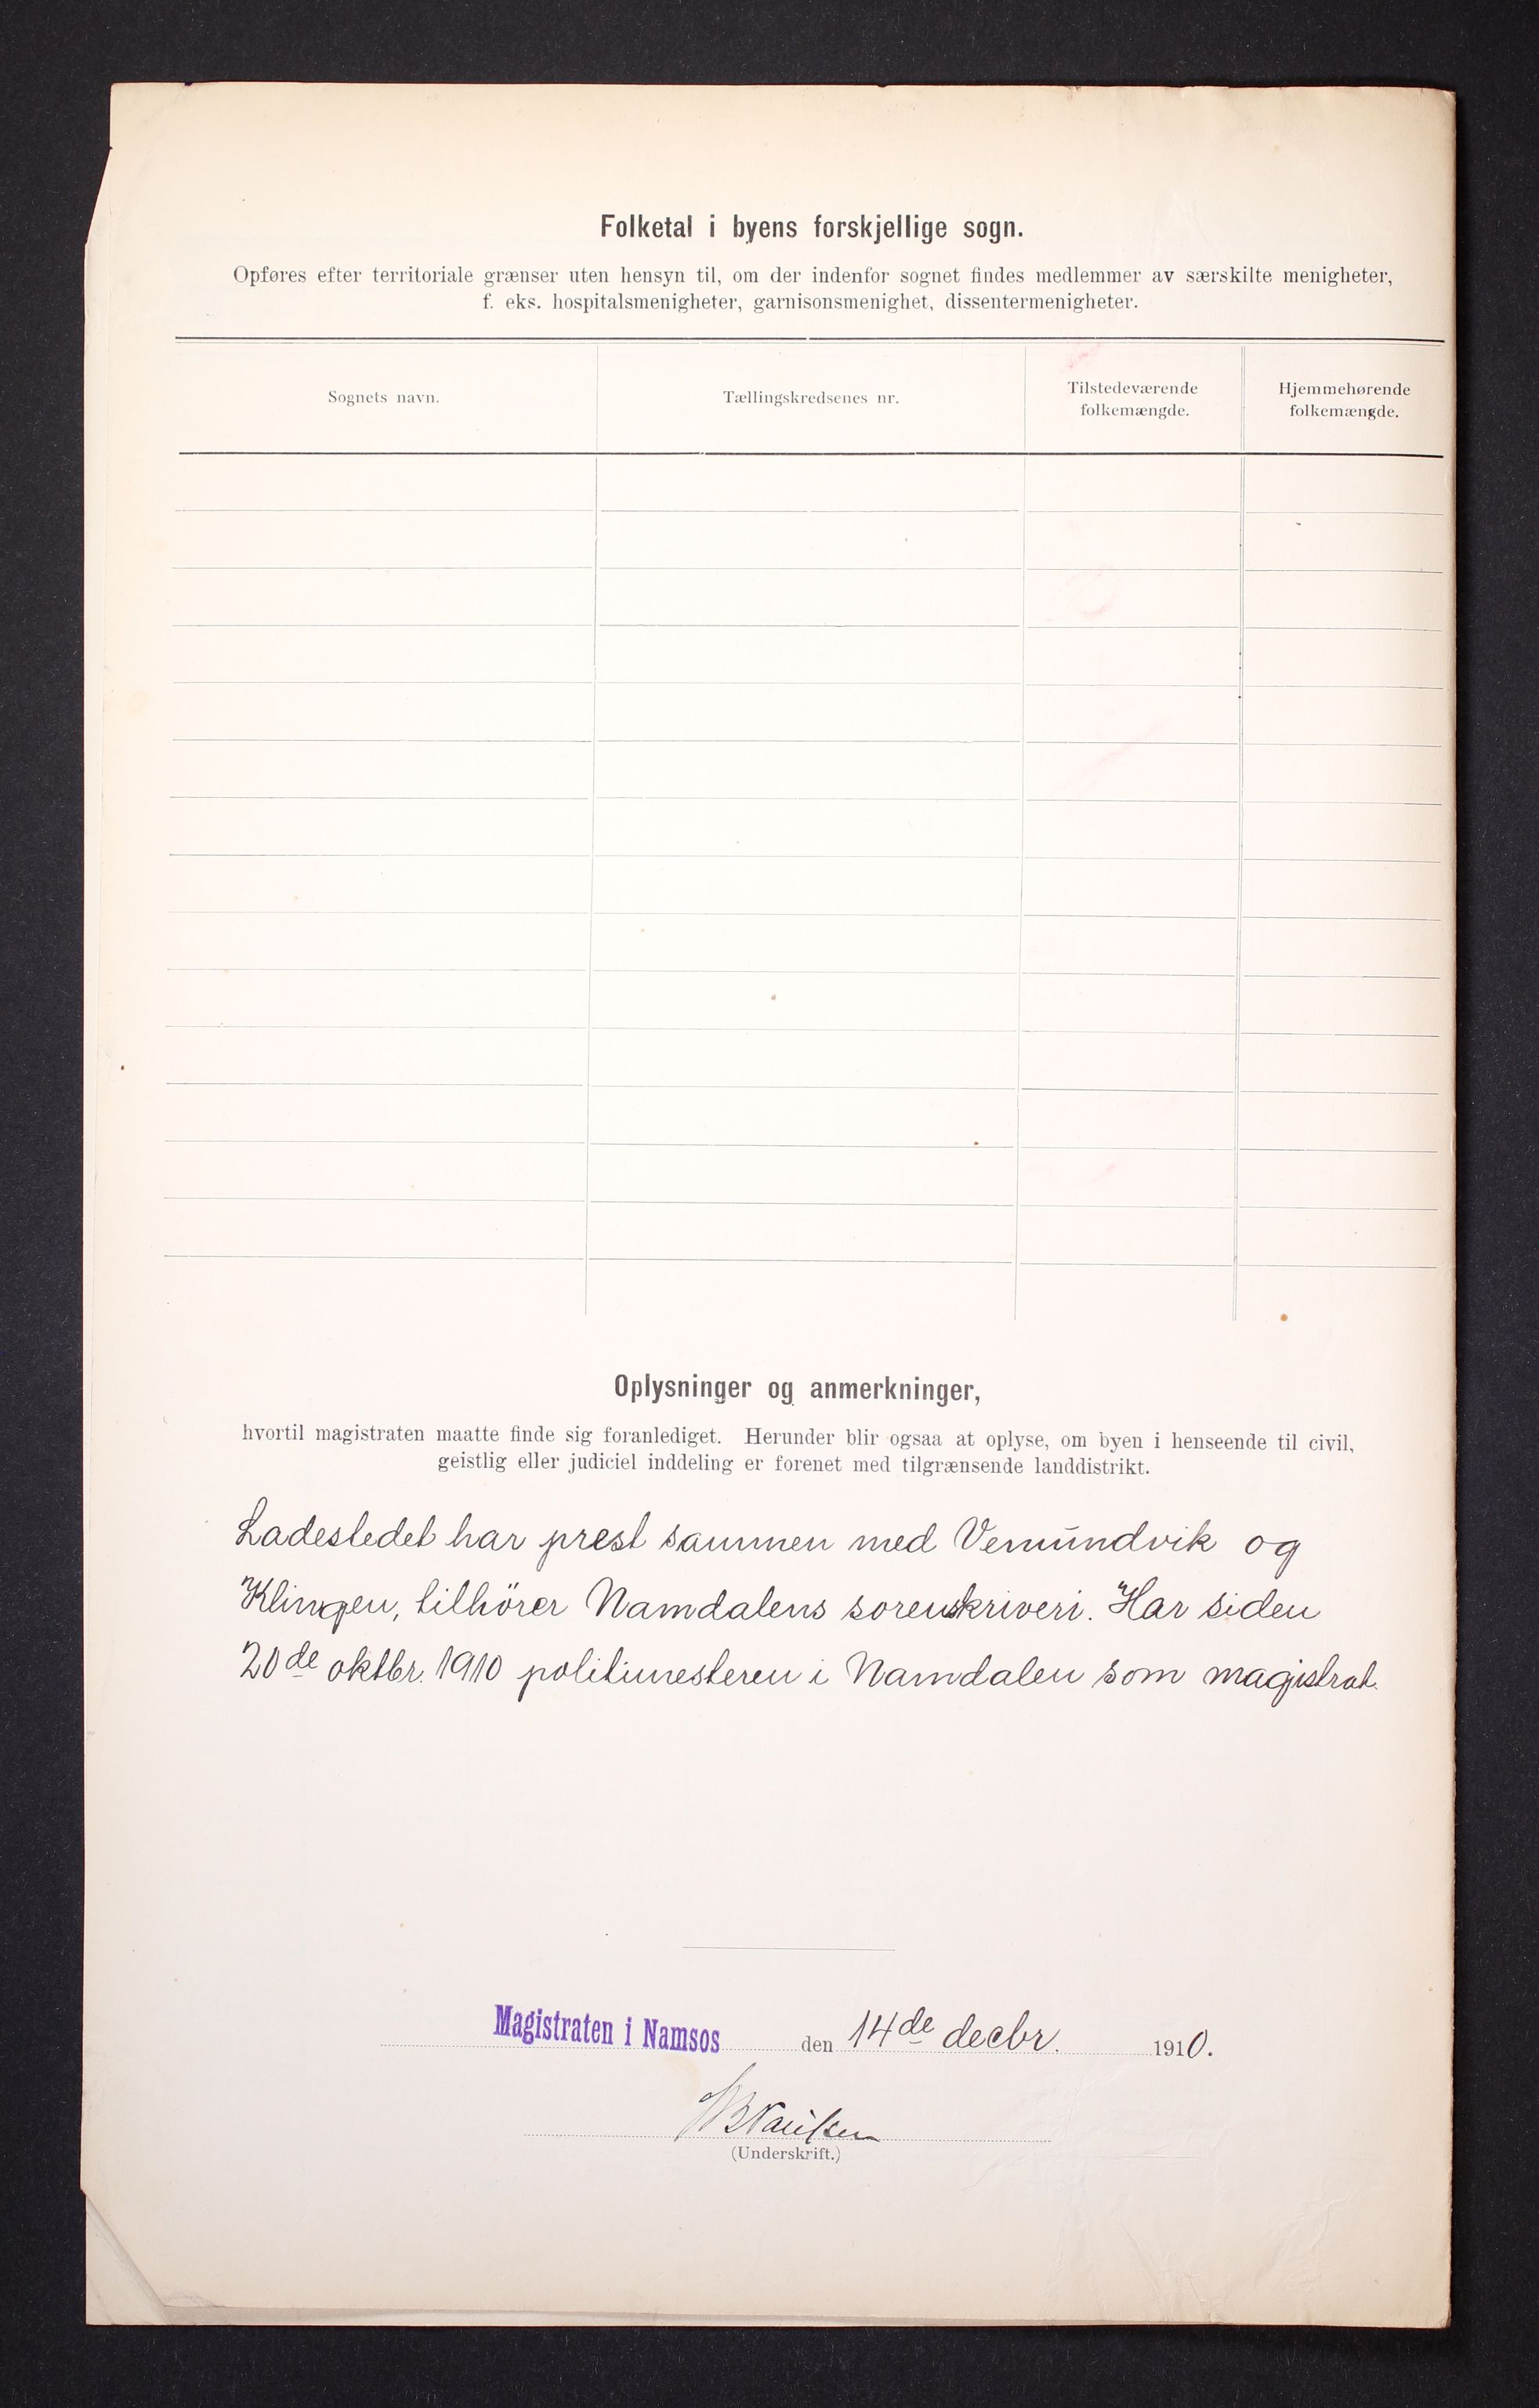 Folketal i byens forskjellige sogn.
Opføres efter territoriale grænser uten hensyn til, om der indenfor sognet findes medlemmer av særskilte menigheter,
f. eks. hospitalsmenigheter, garnisonsmenighet, dissentermenigheter.
Sognets navn.
Tællingskredsenes nr.
Tilstedeværende
folkemængde.
Hjemmehørende
folkemængde.
Oplysninger og anmerkninger,
hvortil magistraten maatte finde sig foranlediget. Herunder blir ogsaa at oplyse, om byen i henseende til civil,
geistlig eller judiciel inddeling er forenet med tilgrænsende landdistrikt.
Ladestedet har prest sammen med Vemundvik og
Klingen, tilhörer Namdalens sorenskriveri. Har siden
20de oktbr. 1910 politimesteren i Namdalen som magistrat.
Magistraten i Namsos den 14de decbr. 1910.
(Underskrift.)